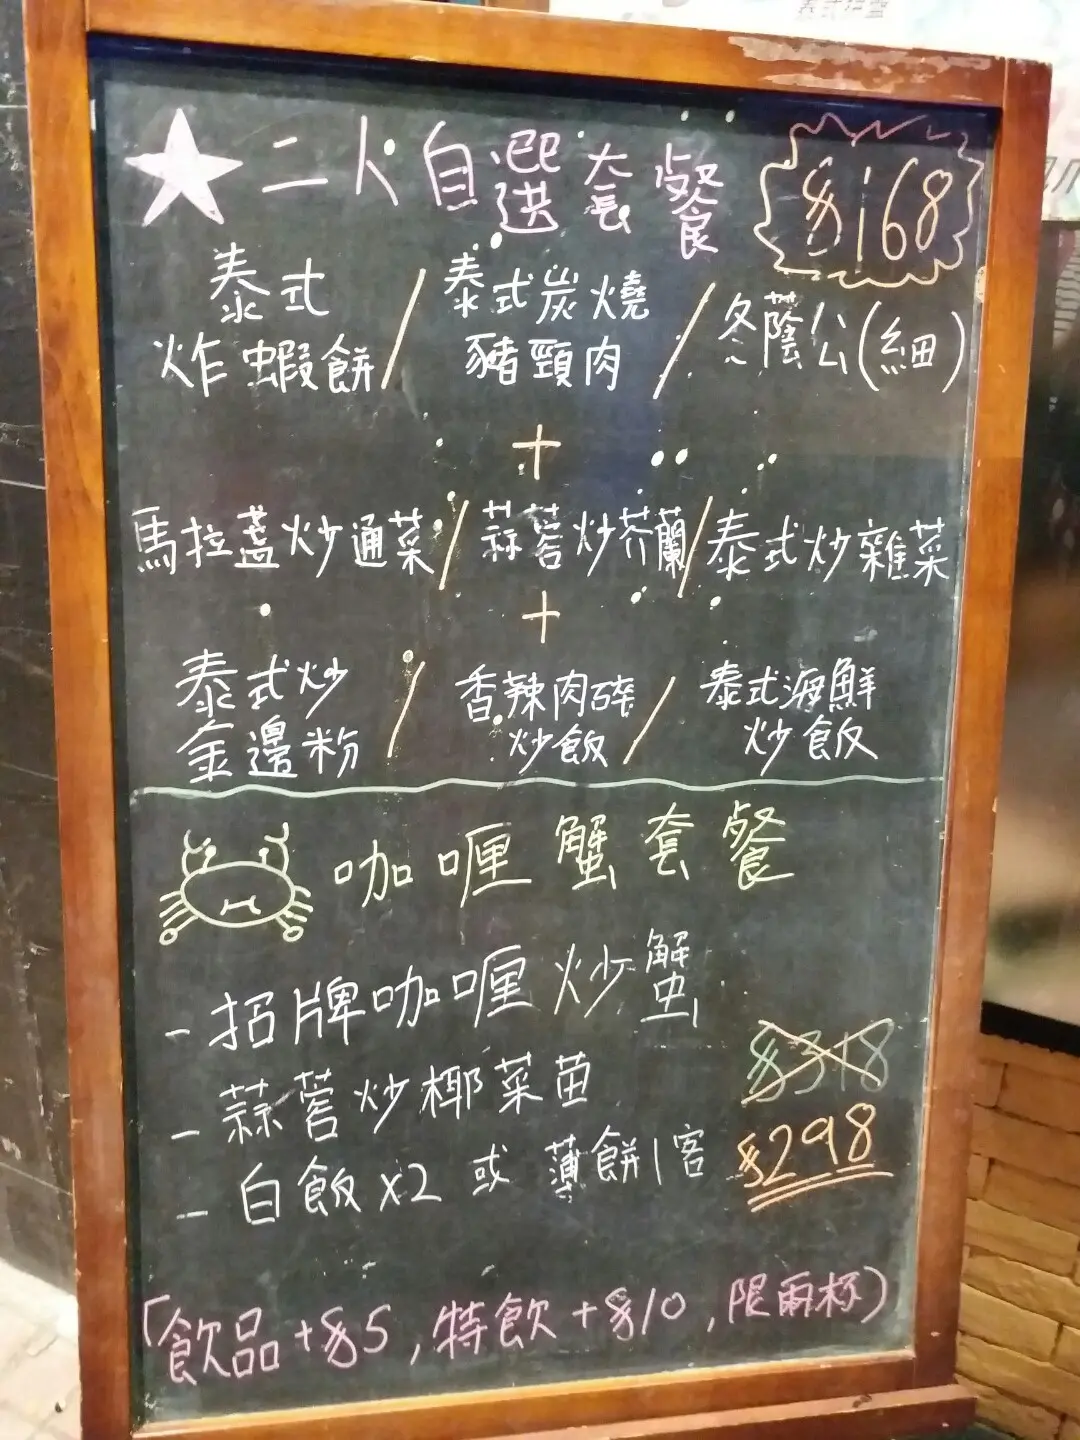 二人自選套餐 $168
泰式炸蝦餅 / 泰式炭燒豬頸肉 / 冬蔭公(細)
+
馬拉盞炒通菜 / 蒜蓉炒芥蘭 / 泰式炒雜菜
+
泰式炒金邊粉 / 香辣肉碎炒飯 / 泰式海鮮炒飯
咖喱蟹套餐
- 招牌咖喱炒蟹
$318
- 蒜蓉炒椰菜苗
- 白飯x2 或 薄餅1客 $298
(飲品+$5,特飲+$10,限兩杯)